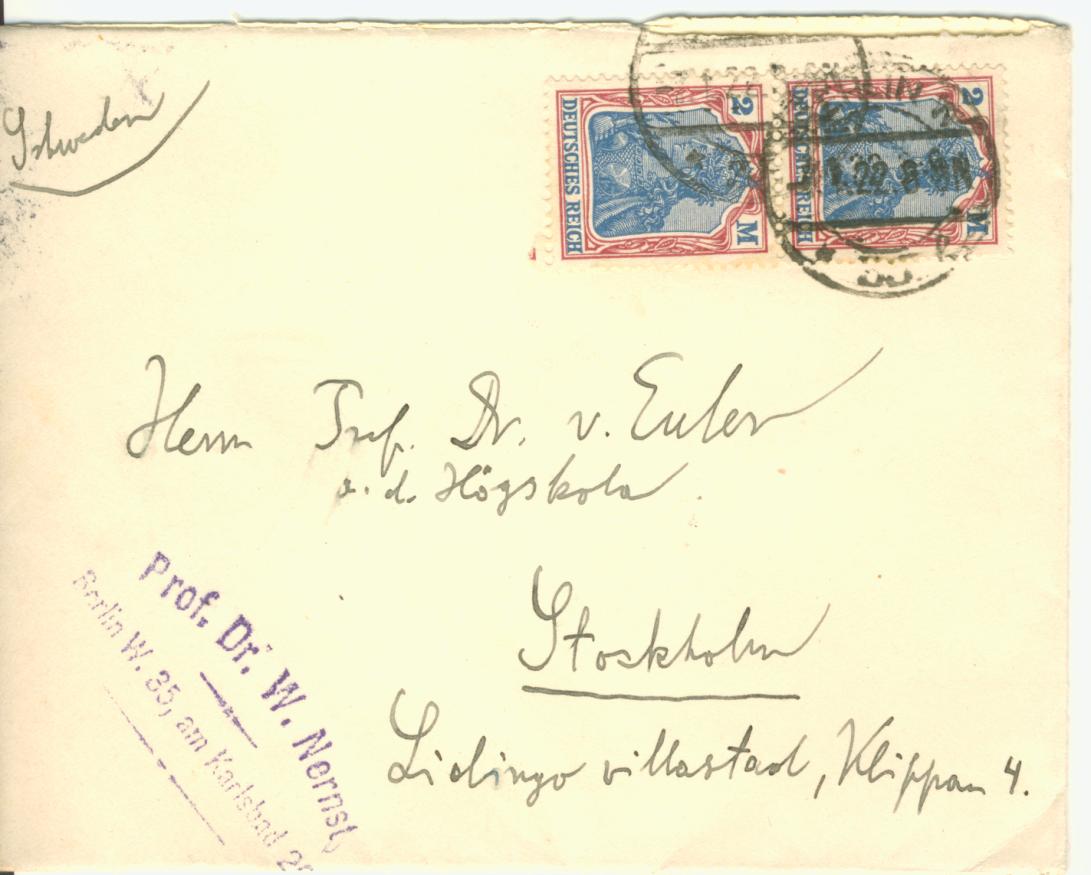 Schweden
2 DEUTSCHES REICH M
2 DEUTSCHES REICH M
BERLIN
.1.22.8-9N
35
Herrn Prof. Dr. v. Euler
a. d. Högskola.
Stockholm
Lidingö villastad, Klippan 4.
Prof. Dr. W. Nernst,
Berlin W. 35, am Karlsbad